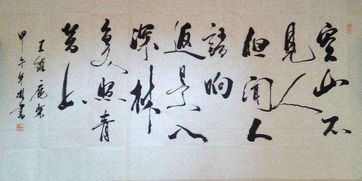 空山不
見人
但聞人
語响
返景入
深林
复照青
苔上
王維鹿柴
甲午
書